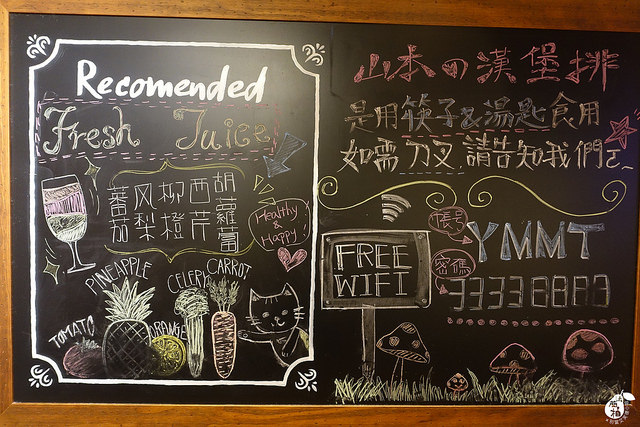 Recomended
Fresh Juice
蕃茄
风梨
柳橙
西芹
胡蘿蔔
Healthy
&
Happy!
PINEAPPLE
CELERY
CARROT
TOMATO
ORANGE
山本の漢堡排
是用筷子&湯匙食用
如需刀叉,請告知我們
FREE
WIFI
帳号
YMMT
密碼
33338883